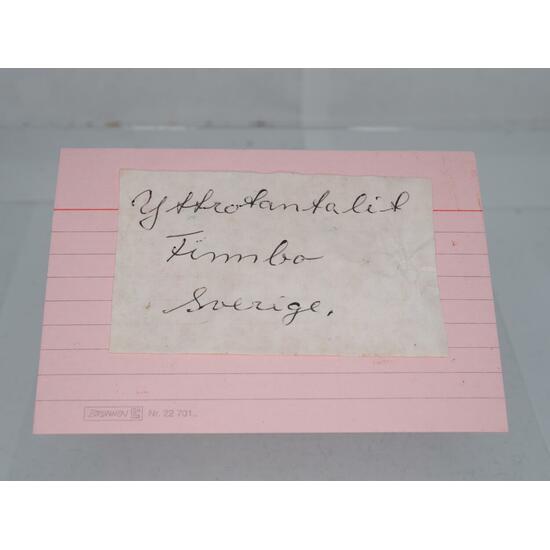 Yttrotantalit
Finnbo
Sverige.
BRUNNEN Nr. 22 701..